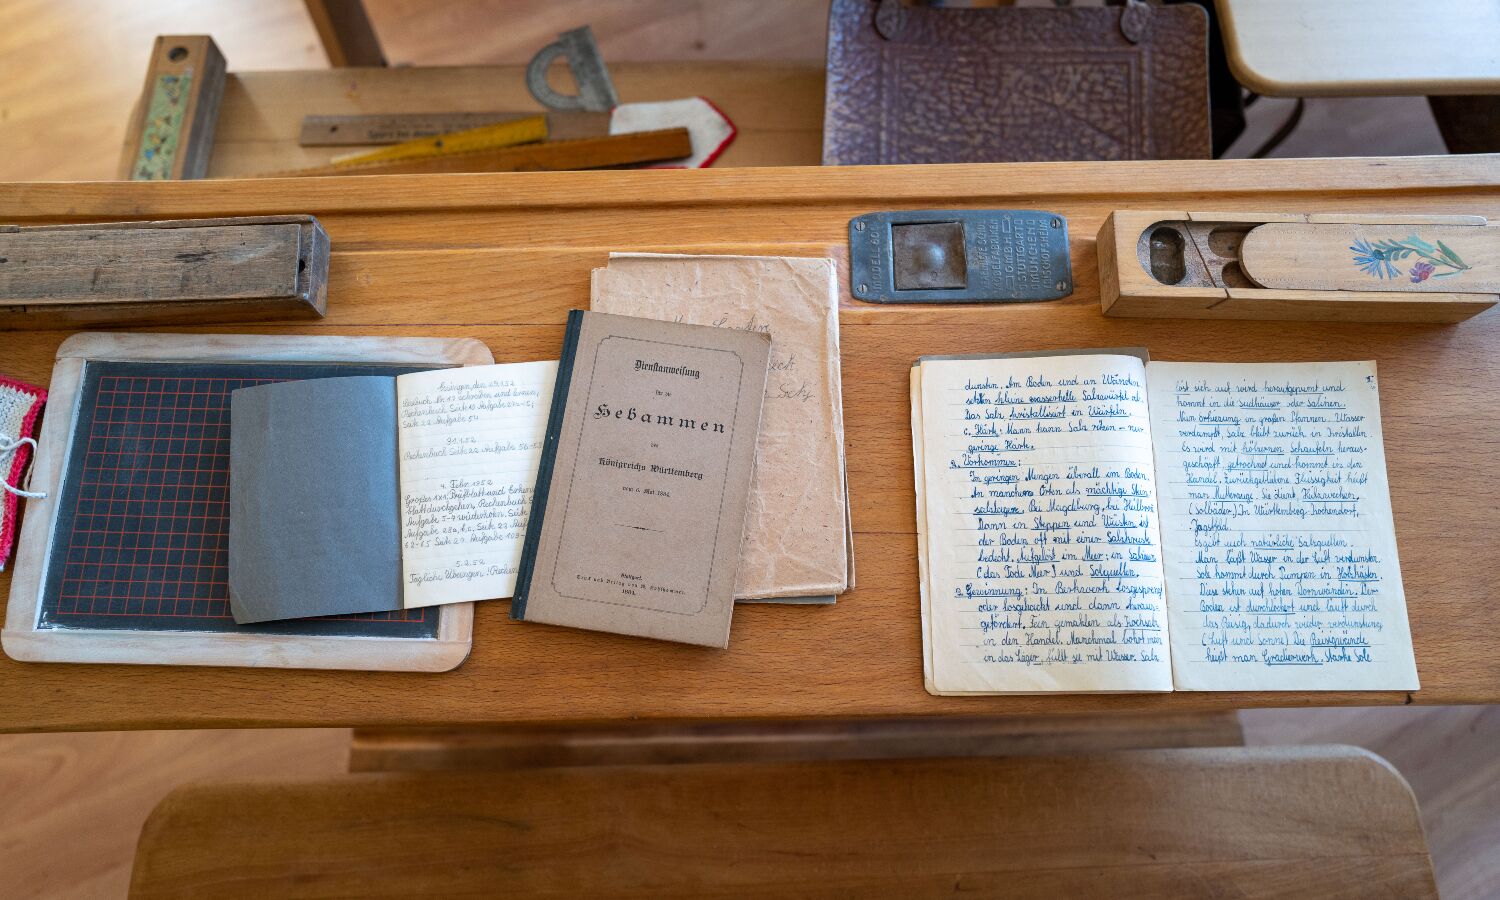 MODELL 600
VEREINIGTE SCHUL-
MÖBELFABRIKEN
G.M.B.H.
STUTTGART
MÜNCHEN
TAUBERBISCHOFSHEIM
29.1.52
Lesebuch Nr. 17 schreiben und lernen,
Rechenbuch Seite 19 Aufgabe
Seite 22 Aufgabe 54
30.1.52
Rechenbuch Seite 22 Aufgabe
4. Febr. 1952
Großes 1x1,
Rechenbuch S
Aufgabe 5-9 wiederholen, Seite
Aufgabe 28 a, b, c. Seite 23
62-65 Seite 27. Aufgabe 109-
5.2.52
Tägliche Übungen: Rechen
Dienstanweisung
für die
Hebammen
des
Königreichs Württemberg
vom 6. Mai 1884.
Stuttgart.
Druck und Verlag von W. Kohlhammer.
1884.
dunsten. Am Boden und an Wänden
setzten kleine wasserhelle Salzwürfel ab.
Das Salz kristallisiert in Würfeln.
c. Härte: Mann kann Salz ritzen – nur
geringe Härte.
2. Vorkommen:
In geringen Mengen überall im Boden.
An manchen Orten als mächtige Stein-
salzlager. Bei Magdeburg, bei Heilbronn
Dann in Steppen und Wüsten ist
der Boden oft mit einer Salzkruste
bedeckt. Aufgelöst im Meer; in Salzseen
(das Tode Meer) und Solequellen.
3. Gewinnung: Im Bergwerk losgesprengt
oder losgehackt und dann heraus-
gefördert. Fein gemahlen als Kochsalz
in den Handel. Manchmal bohrt man
in das Lager, füllt sie mit Wasser. Salz
löst sich auf wird herausgepumt und
kommt in die Sudhäuser oder Salinen.
Nun erhitzung in großen Pfannen. Wasser
verdampft, Salz bleibt zurück in Kristallen.
Es wird mit hölzernen Schaufeln heraus-
geschöpft, getrocknet und kommt in den
Handel. Zurückgebliebene Flüssigkeit heißt
man Mutterlauge. Sie dient Heilzwecken,
(Solbäder.) In Württemberg: Kochendorf,
Jagstfeld.
Es gibt auch natürliche Salzquellen.
Man läßt Wasser in der Luft verdunsten.
Sole kommt durch Pumpen in Holzkästen.
Diese stehn auf hohen Dornwänden. Der
Boden ist durchlöchert und läuft durch
das Reisig, dadurch wieder verdunstung
(Luft und Sonne) Die Reisigwände
heißt man Gradierwerk. Starke Sole